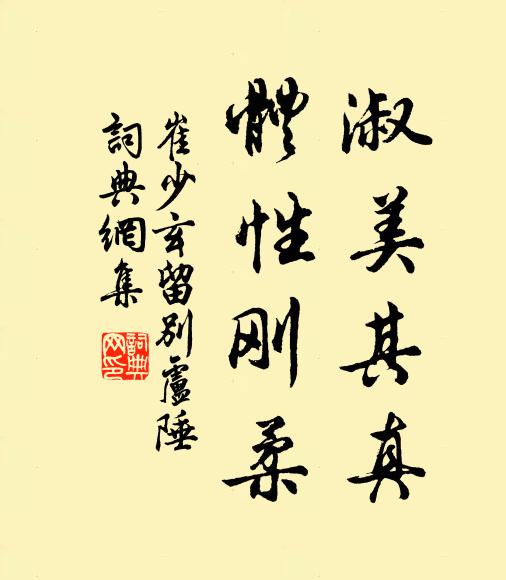 淑美其真
體性刚柔
崔少玄留别盧陲
詞典網集
詞典
网印